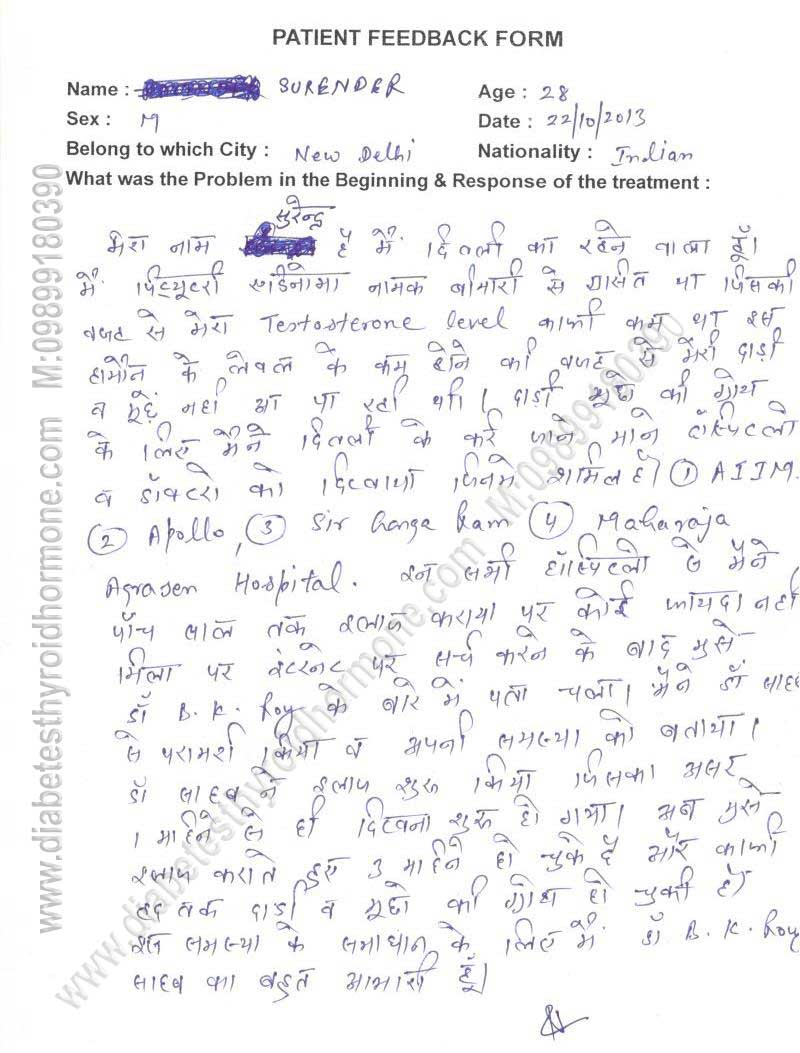 PATIENT FEEDBACK FORM
Name : SURENDER Age : 28
Sex : M Date : 22/10/2013
Belong to which City : New Delhi Nationality : Indian
What was the Problem in the Beginning & Response of the treatment :
सुरेन्द्र
मेरा नाम है मैं दिल्ली का रहने वाला हूँ।
मैं पिट्यूटरी एडीनोमा नामक बीमारी से ग्रसित था जिसकी
वजह से मेरा Testosterone level काफी कम था इस
हार्मोन के लेवल के कम होने की वजह से मेरी दाड़ी
व मूछें नही आ पा रही थी। दाड़ी मूछो की ग्रोथ
के लिए मैंने दिल्ली के कई जाने माने हॉस्पिटलो
व डॉक्टरो को दिखाया जिनमे शामिल है। ① AIIM
② Apollo, ③ Sir Ganga Ram ④ Maharaja
Agrasen Hospital. इन सभी हॉस्पिटलो से मैंने
पाँच साल तक इलाज कराया पर कोई फायदा नही
मिला पर इंटरनेट पर सर्च करने के बाद मुझे
डॉ B. K. Roy के बारे में पता चला। मैंने डॉ साहब
से परामर्श किया व अपनी समस्या को बताया।
डॉ साहब ने इलाज शुरू किया जिसका असर
1 महिने से ही दिखना शुरू हो गया। अब मुझे
इलाज कराते हुए 3 महिने हो चुके है और काफी
हद तक दाड़ी व मूछो की ग्रोथ हो चुकी है।
इस समस्या के समाधान के लिए मैं डॉ B. K. Roy
साहब का बहुत आभारी हूँ।
www.diabetesthyroidhormone.com M:09899180390
www.diabetesthyroidhormone.com M:09899180390